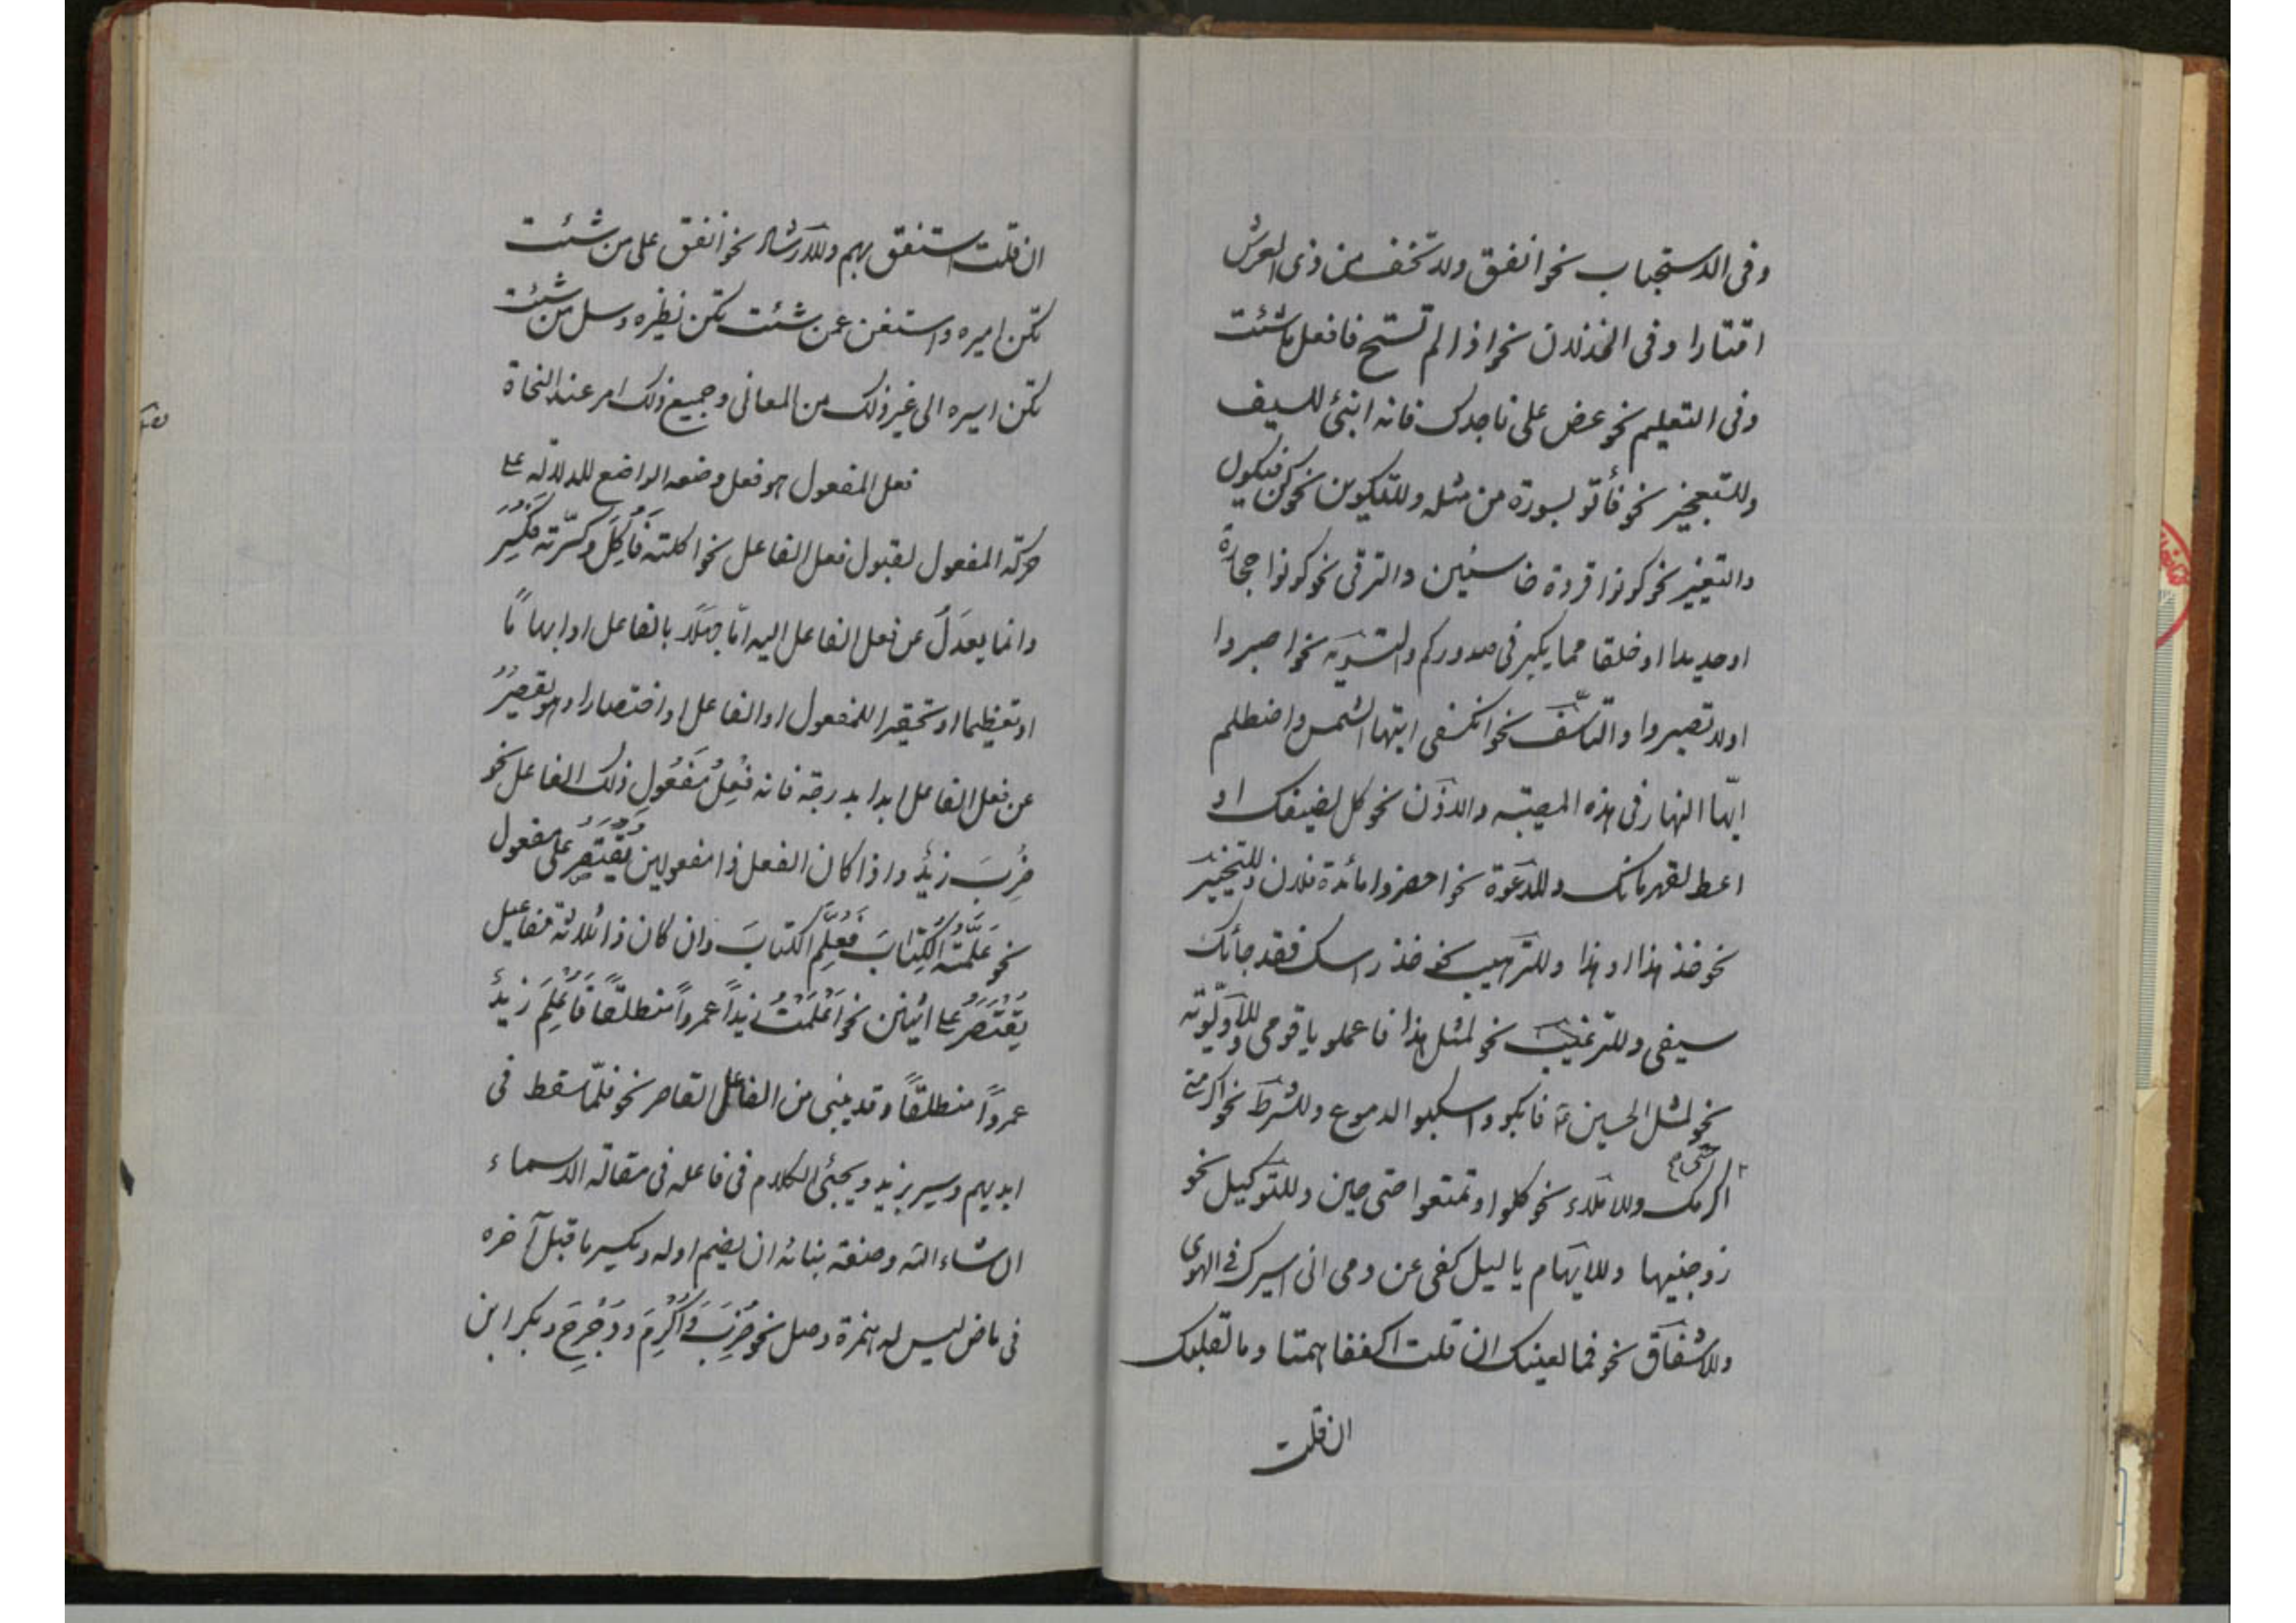 وفى الاستجباب نحو انفق ولا تخف من ذى العرش
اقتارا وفى الخذلان نحو اذا لم تستح فافعل ما شئت
وفى التعليم نحو عض على ناجدك فانه انبئ للسيف
وللتعجيز نحو فأتو بسورة من مثله وللتكوين نحو كن فيكون
والتغيير نحو كونوا قردة خاسئين والترقى نحو كونوا حجارة
او حديدا او خلقا مما يكبر فى صدوركم والتسويه نحو اصبروا
اولا تصبروا والتأسّف نحو انكسفى ايتها الشمس واضطلم
ايّها النهار فى هذه المصيبة والاذن نحو كل لضيفك او
اعط لقهرمانك وللدعوة نحو احضروا مائدة فلان وللتخيير
نحو خذ هذا او هذا وللترهيب نحو خذ راسك فقد جائك
سيفى وللترغيب نحو لمثل هذا فاعملو يا قومى وللأولويّة
نحو لمثل الحسين ع فابكو واسكبوا الدموع وللشرط نحو اكرمنى
اكرمك وللاملاء نحو كلوا وتمتعوا حتى حين وللتوكيل نحو
زوجنيها وللايهام يا ليل كفى عن دمى انى اسيرك فى الهوى
وللاشفاق نحو فما لعينيك ان قلت اكففا همتا وما لقلبك
ان قلت
ان قلت استفق يهم وللارشاد نحو انفق على من شئت
تكن اميره واستغن عمن شئت تكن نظيره وسل من شئت
تكن اسيره الى غير ذلك من المعانى وجميع ذلك امر عند النحاة
فعل المفعول هو فعل وضعه الواضع للدلالة على
حركة المفعول لقبول فعل الفاعل نحو اكلته فَأُكِلَ وكسّرته فكُسِّر
وانما يعدَلُ عن فعل الفاعل اليه امّا جهلاً بالفاعل او ابهاماً
او تعظيما او تحقيرا للمفعول او الفاعل او اختصارا وهو يقصُرُ
عن فعل الفاعل ابدا بدرجة فانه فِعْلُ مَفعُولِ ذلك الفاعل نحو
ضُرِبَ زيدٌ واذا كان الفعل ذا مفعولين يُقْتَصَر على مفعول
نحو عَلَّمْتُهُ الكِتابَ فَعُلِّمَ الكتابَ وان كان ذا ثلاثة مفاعيل
يُقْتَصَرُ على اثنين نحو اَعْلَمْتُ زيداً عمرواً منطلقاً فَاُعْلِمَ زيدٌ
عمرواً منطلقاً وقد يبنى من الفاعل القاصر نحو فلمّا سقط فى
ايديهم وسير بزيد ويجيئ الكلام فى فاعله فى مقالة الاسماء
ان شاء الله وصنعة بنائه ان يضم اوله ويكسر ما قبل آخره
فى ماض ليس له همزة وصل نحو ضُرِبَ وَاُكْرِمَ ودُحْرِجَ وبكر ابن